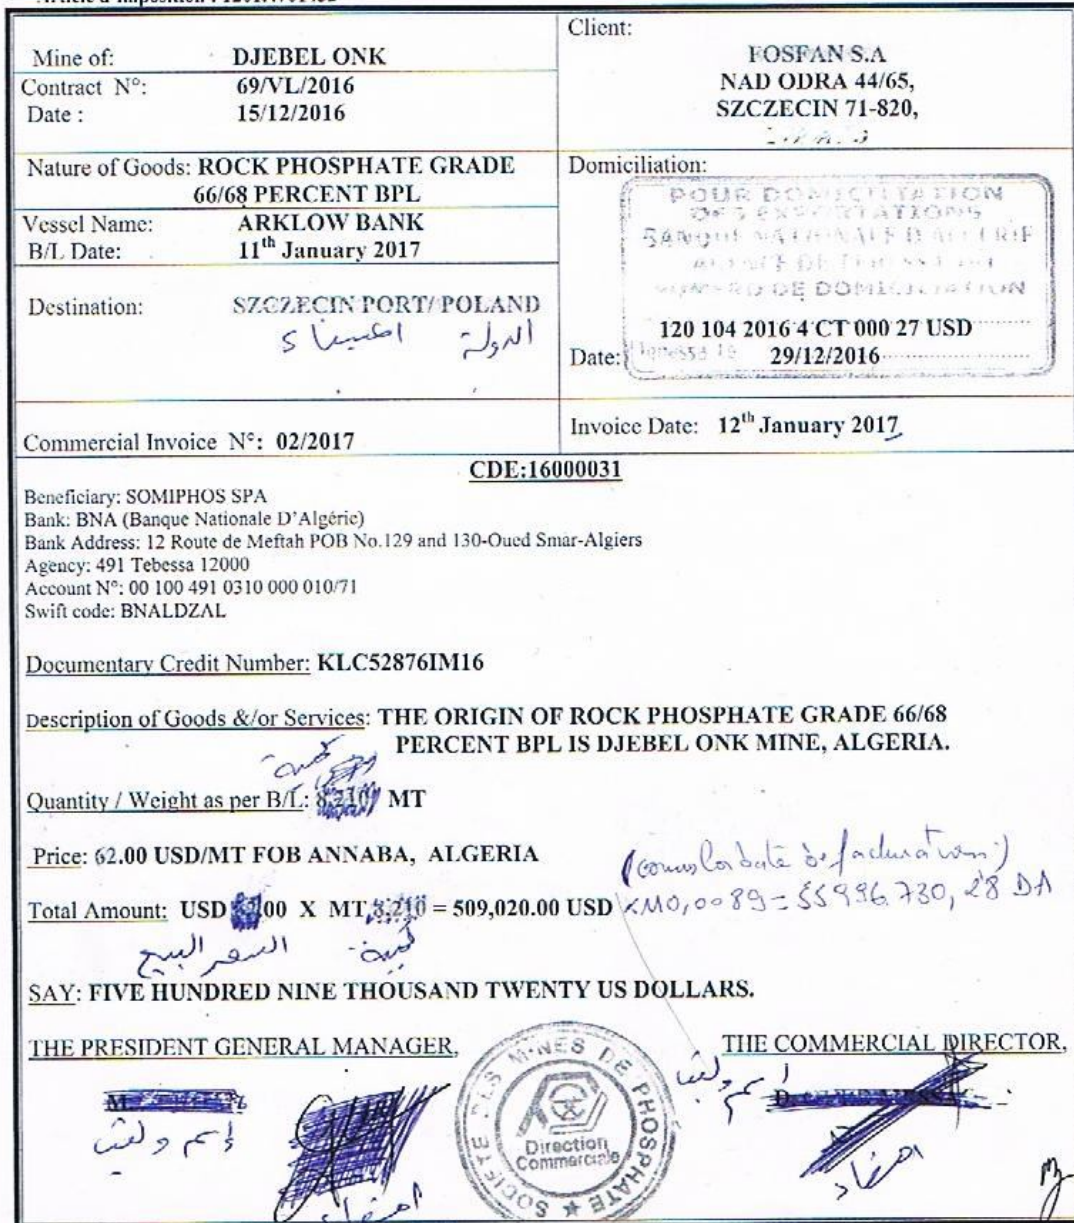 Mine of: DJEBEL ONK
Contract N°: 69/VL/2016
Date : 15/12/2016
Client:
FOSFAN S.A
NAD ODRA 44/65,
SZCZECIN 71-820,
Nature of Goods: ROCK PHOSPHATE GRADE
66/68 PERCENT BPL
Vessel Name: ARKLOW BANK
B/L Date: 11th January 2017
Destination: SZCZECIN PORT/ POLAND
الدولة
Domiciliation:
POUR DOMICILIATION
DES EXPORTATIONS
BANQUE NATIONALE D'ALGERIE
NUMERO DE DOMICILIATION
120 104 2016 4 CT 000 27 USD
Date: 29/12/2016
Commercial Invoice N°: 02/2017
Invoice Date: 12th January 2017
CDE:16000031
Beneficiary: SOMIPHOS SPA
Bank: BNA (Banque Nationale D'Algérie)
Bank Address: 12 Route de Meftah POB No.129 and 130-Oued Smar-Algiers
Agency: 491 Tebessa 12000
Account N°: 00 100 491 0310 000 010/71
Swift code: BNALDZAL
Documentary Credit Number: KLC52876IM16
Description of Goods &/or Services: THE ORIGIN OF ROCK PHOSPHATE GRADE 66/68
PERCENT BPL IS DJEBEL ONK MINE, ALGERIA.
كمية
Quantity / Weight as per B/L: 8,210 MT
Price: 62.00 USD/MT FOB ANNABA, ALGERIA
facturation)
Total Amount: USD 00 X MT 8,210 = 509,020.00 USD ×110,0089=55996.730,28 DA
السعر البيع كمية
SAY: FIVE HUNDRED NINE THOUSAND TWENTY US DOLLARS.
THE PRESIDENT GENERAL MANAGER,
THE COMMERCIAL DIRECTOR,
SOCIETE DES MINES DE PHOSPHATE
Direction
Commerciale
إسم ولقب
إسم ولقب
امضاء
امضاء